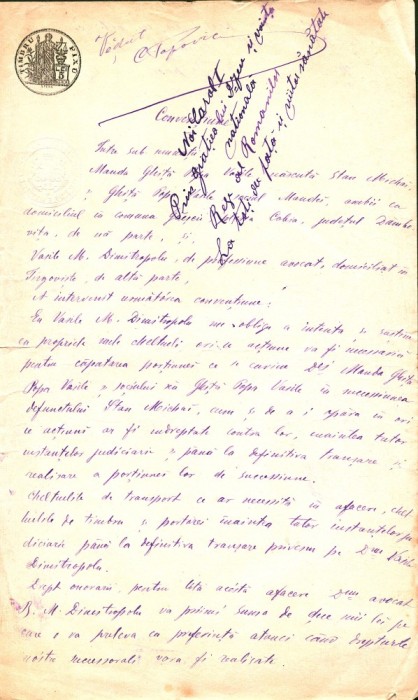 TIMBRU FIXU
Vĕdut
Popovici
Noi Carol I
Prin gratiea lui Dzeu si vointa
nationala
Rege al Romanilor
La toti de față si viitori sănătate
Convențiune
Intre sub
Manda Ghiță Popa Vasile născută Stan Mechai,
și Ghiță Popa Mandei, ambii cu
domiciliul in comuna Cobia, județul Dâmbo
vița, de uă parte, și
Vasile M. Dimitropolu, de profesiune avocat, domiciliat in
Tirgoviste, de altă parte,
A intervenit următórea convențiune:
Eu Vasile M. Dimitropolu me oblige a intenta și susține
cu propriele mele cheltueli ori-ce acțiune va fi necesarie
pentru căpătarea porțiunei ce se cuvine Dei Manda Ghiță
Popa Vasile și socialui Ghiță Popa Vasile in succesiunea
defunctului Stan Mechai, cum și de a i apăra in ori
ce acțiuni ar fi indreptate contra lor, inaintea tutor
instanțelor judiciare și până la definitiva tranșare și
realisare a porțiunei lor de succesiune.
Cheltuelile de transport ce ar necesită in afacere, chel
tuelile de timbru și portărei inaintea tutor instanțelor ju
diciare până la definitiva tranșare privesc pe Dnu Vasile
Dimitropolu.
Drept onorariu pentru tótă acéstă afacere Dnu avocat
V. M. Dimitropolu va primi suma de dece mii lei pe
care o va preleva cu preferință atunci când drepturile
nóstre succesorali vor fi realisate.